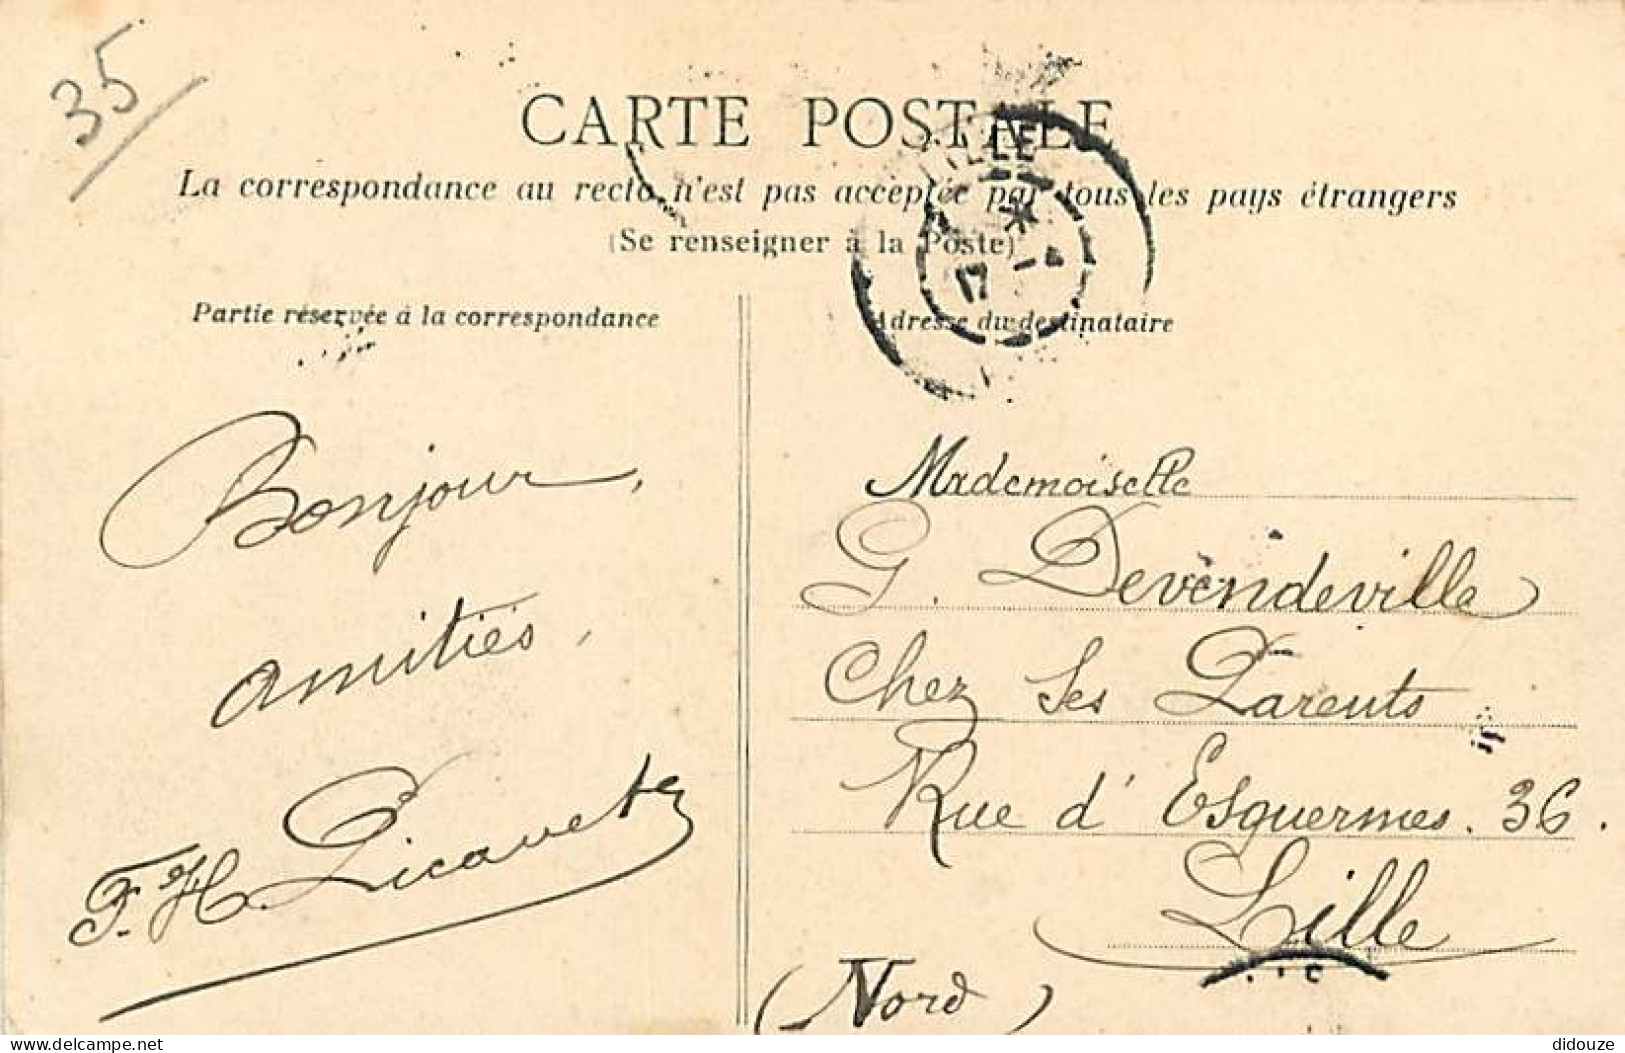 35
CARTE POSTALE
La correspondance au recto n'est pas acceptée par tous les pays étrangers
(Se renseigner à la Poste)
LILLE
17 - 4
Partie réservée à la correspondance
Bonjour,
amitiés,
F. H. Picavet
Adresse du destinataire
Mademoiselle
G. Devendeville
Chez Ses Parents
Rue d'Esquermes. 36.
Lille
(Nord)
delcampe.net
didouze